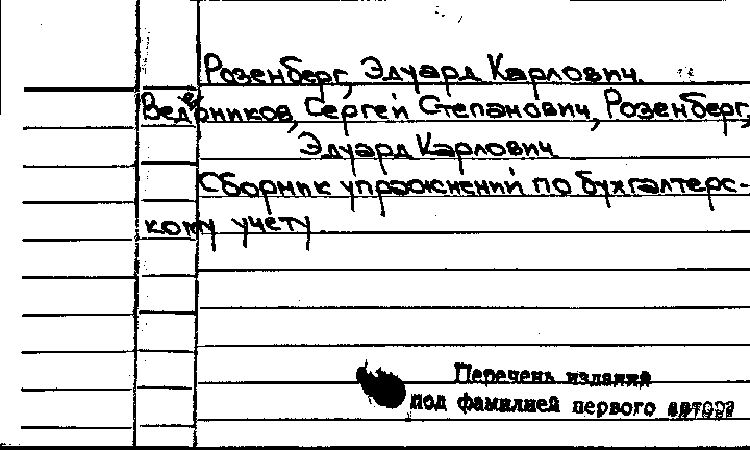 Розенберг, Эдуард Карлович.
Ведерников, Сергей Степанович, Розенберг,
Эдуард Карлович
Сборник упражнений по бухгалтерс-
кому учету
Перечень изданий
под фамилией первого автора